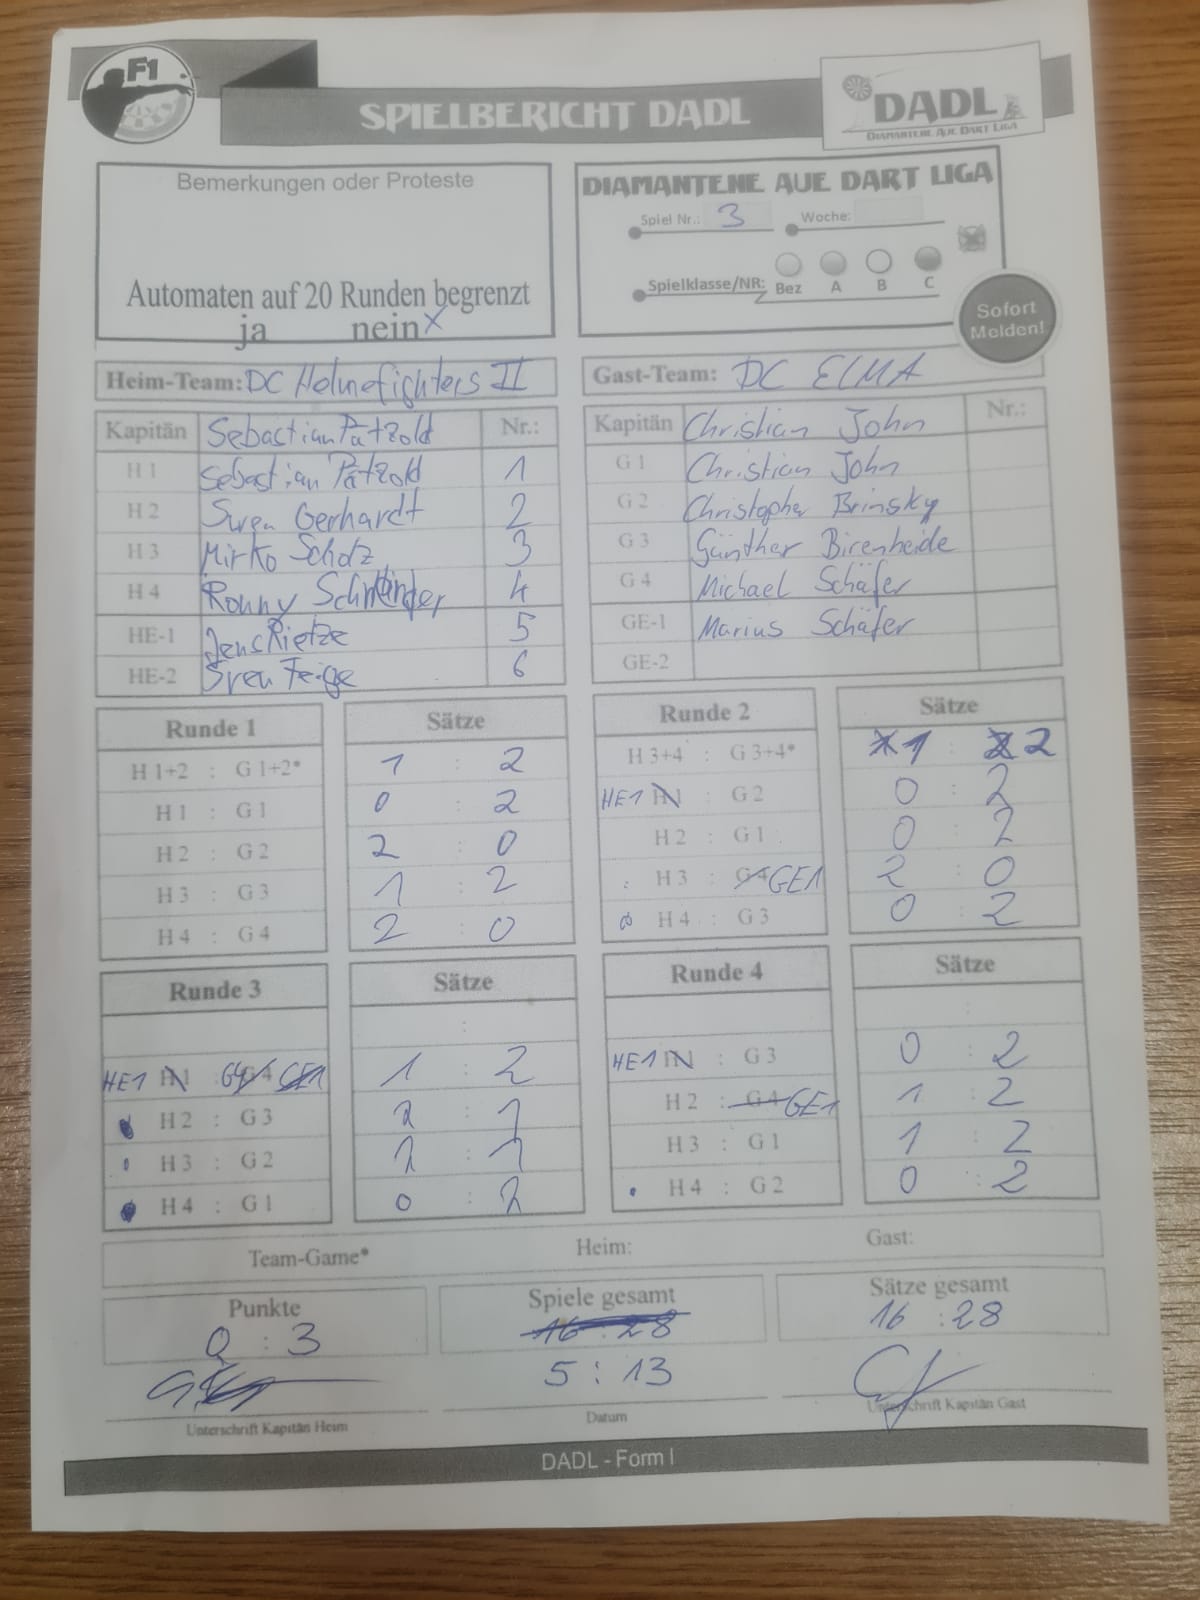 F1
SPIELBERICHT DADL
DADL
DIAMANTENE AUE DART LIGA
Bemerkungen oder Proteste
Automaten auf 20 Runden begrenzt
ja nein x
DIAMANTENE AUE DART LIGA
Spiel Nr.: 3 Woche:
Spielklasse/NR: Bez A B C
Sofort
Melden!
Heim-Team: DC Helmefighters II
Kapitän Sebastian Pätzold Nr.:
H 1 Sebastian Pätzold 1
H 2 Swen Gerhardt 2
H 3 Mirko Scholz 3
H 4 Ronny 4
HE-1 Jens Rietze 5
HE-2 Sven Feige 6
Gast-Team: DC ELMA
Kapitän Christian John Nr.:
G 1 Christian John
G 2 Christopher Brinsky
G 3 Günther Birenheide
G 4 Michael Schäfer
GE-1 Marius Schäfer
GE-2
Runde 1 Sätze
H 1+2 : G 1+2* 1 : 2
H 1 : G 1 0 : 2
H 2 : G 2 2 : 0
H 3 : G 3 1 : 2
H 4 : G 4 2 : 0
Runde 2 Sätze
H 3+4 : G 3+4* 1 : 2
HE1 H1 : G 2 0 : 2
H 2 : G 1 0 : 2
H 3 : G 4 GE1 2 : 0
H 4 : G 3 0 : 2
Runde 3 Sätze
:
HE1 H1 : G4 GE1 1 : 2
H 2 : G 3 2 : 1
H 3 : G 2 2 : 1
H 4 : G 1 0 : 2
Runde 4 Sätze
:
HE1 H1 : G 3 0 : 2
H 2 : G 4 GE1 1 : 2
H 3 : G 1 1 : 2
H 4 : G 2 0 : 2
Team-Game* Heim: Gast:
Punkte Spiele gesamt Sätze gesamt
0 : 3 16 : 28 16 : 28
5 : 13
Unterschrift Kapitän Heim Datum Unterschrift Kapitän Gast
DADL - Form I